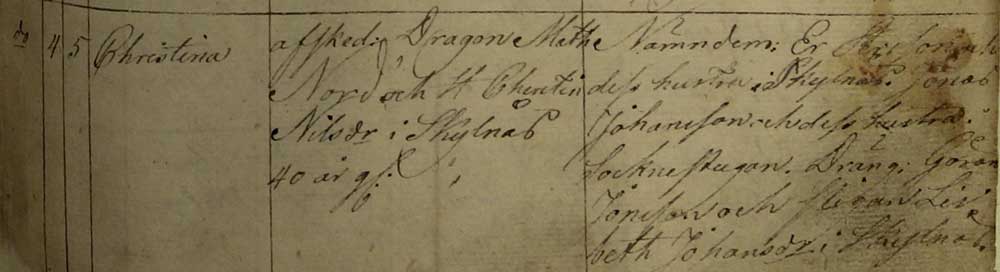 do 4 5 Christina
afsked: Dragon Math
Nord och H Cherstin
Nilsdr i Skylnäs
40 år gl:
e Nämndem: Er Persson och
dess hustru i Skylnäs. Jonas
Johansson och dess hustru i
Socknestugan. Dräng: Göran
Jonsson och pigan Lis
beth Johansdr i Skylnäs.